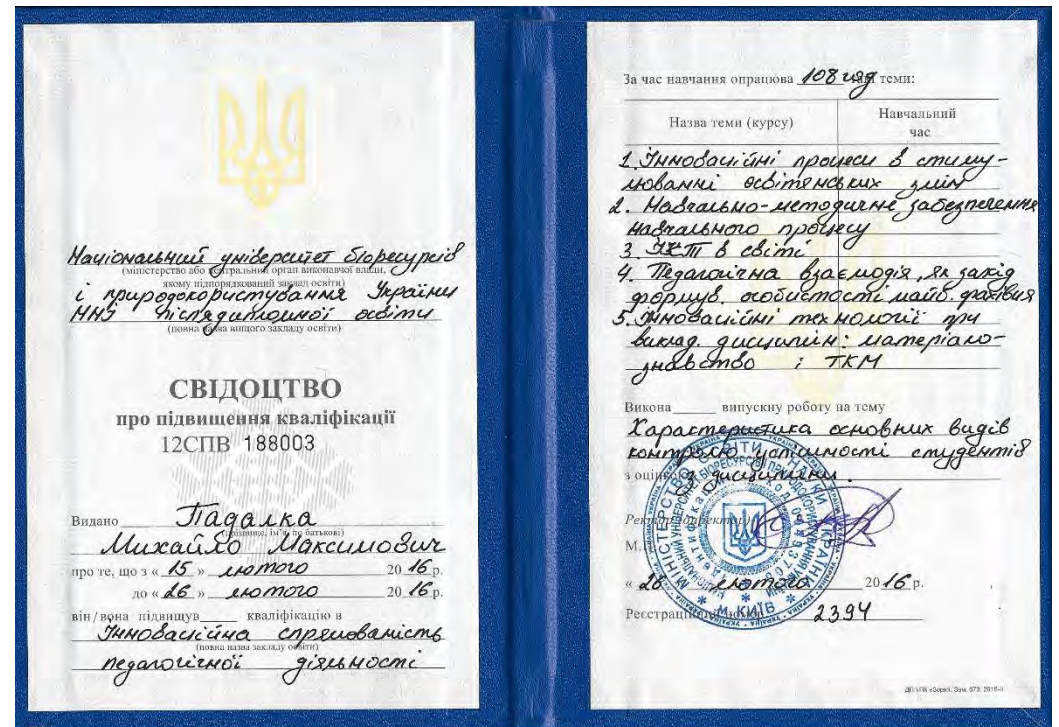 Національний університет біоресурсів
(міністерство або центральний орган виконавчої влади,
якому підпорядкований заклад освіти)
і природокористування України
ННІ післядипломної освіти
(повна назва вищого закладу освіти)
СВІДОЦТВО
про підвищення кваліфікації
12СПВ 188003
Видано Падалка
(прізвище, ім'я, по батькові)
Михайло Максимович
про те, що з « 15 » лютого 2016 р.
до « 26 » лютого 2016 р.
він/вона підвищув кваліфікацію в
Інноваційна спрямованість
(повна назва закладу освіти)
педагогічної діяльності
За час навчання опрацюва 108 год теми:
Назва теми (курсу) Навчальний
час
1. Інноваційні процеси в стиму-
люванні освітянських змін
2. Навчально-методичне забезпечення
навчального процесу
3. ІКТ в світі
4. Педагогічна взаємодія, як захід
формув. особистості майб. фахівця
5. Інноваційні технології при
виклад. дисциплін: матеріало-
знавство і ТКМ
Викона випускну роботу на тему
Характеристика основних видів
контролю успішності студентів
з оцінкою з дисципліни.
Ректор (директор)
М.П.
« 26 » лютого 2016 р.
Реєстраційний 2394
МІНІСТЕРСТВО ОСВІТИ І НАУКИ УКРАЇНИ
М. КИЇВ